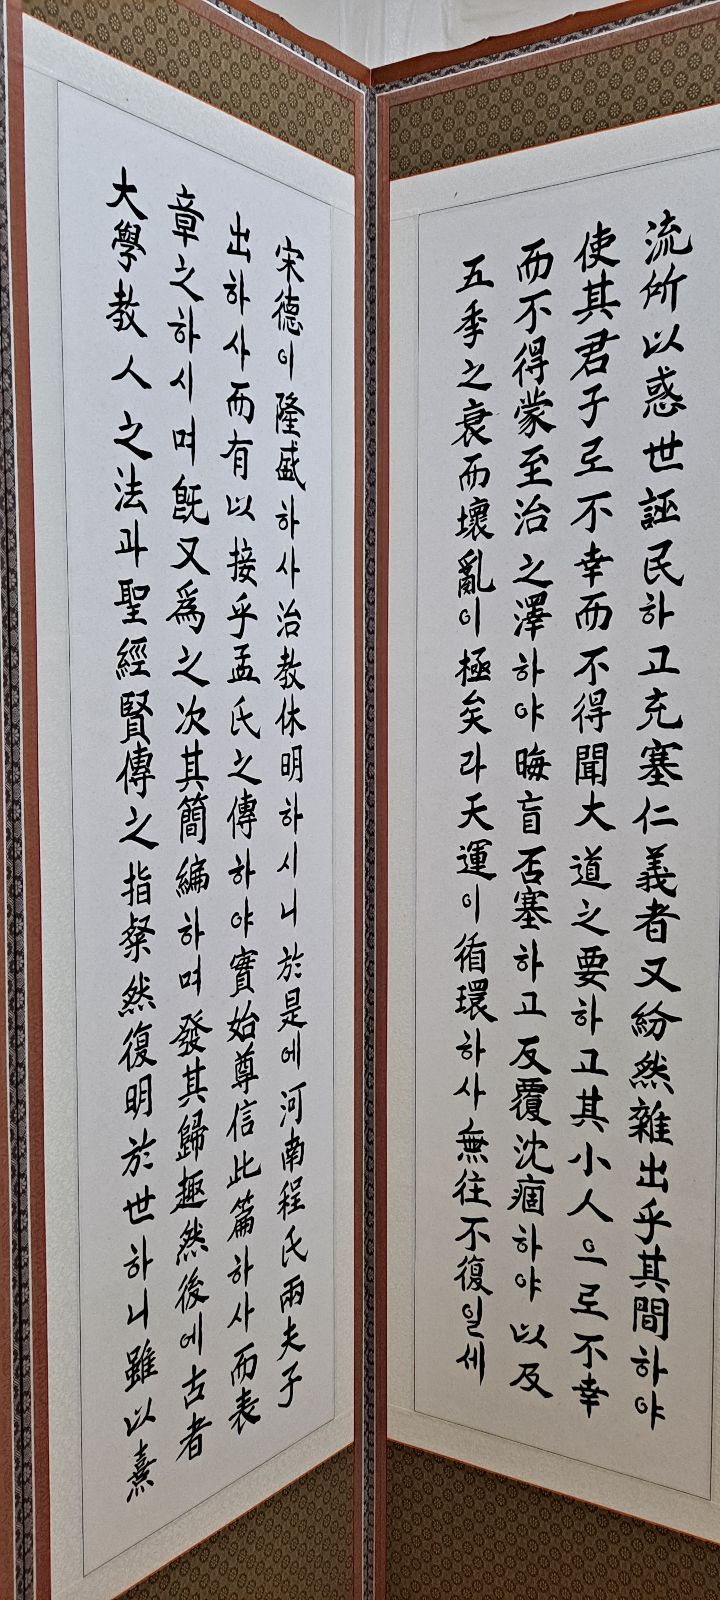 流所以惑世誣民하고充塞仁義者又紛然雜出乎其間하야
使其君子로不幸而不得聞大道之要하고其小人으로不幸
而不得蒙至治之澤하야晦盲否塞하고反覆沈痼하야以及
五季之衰而壞亂이極矣라天運이循環하사無往不復일세
宋德이隆盛하사治教休明하시니於是에河南程氏兩夫子
出하사而有以接乎孟氏之傳하야實始尊信此篇하사而表
章之하시며旣又爲之次其簡編하며發其歸趣然後에古者
大學教人之法과聖經賢傳之指粲然復明於世하니雖以熹